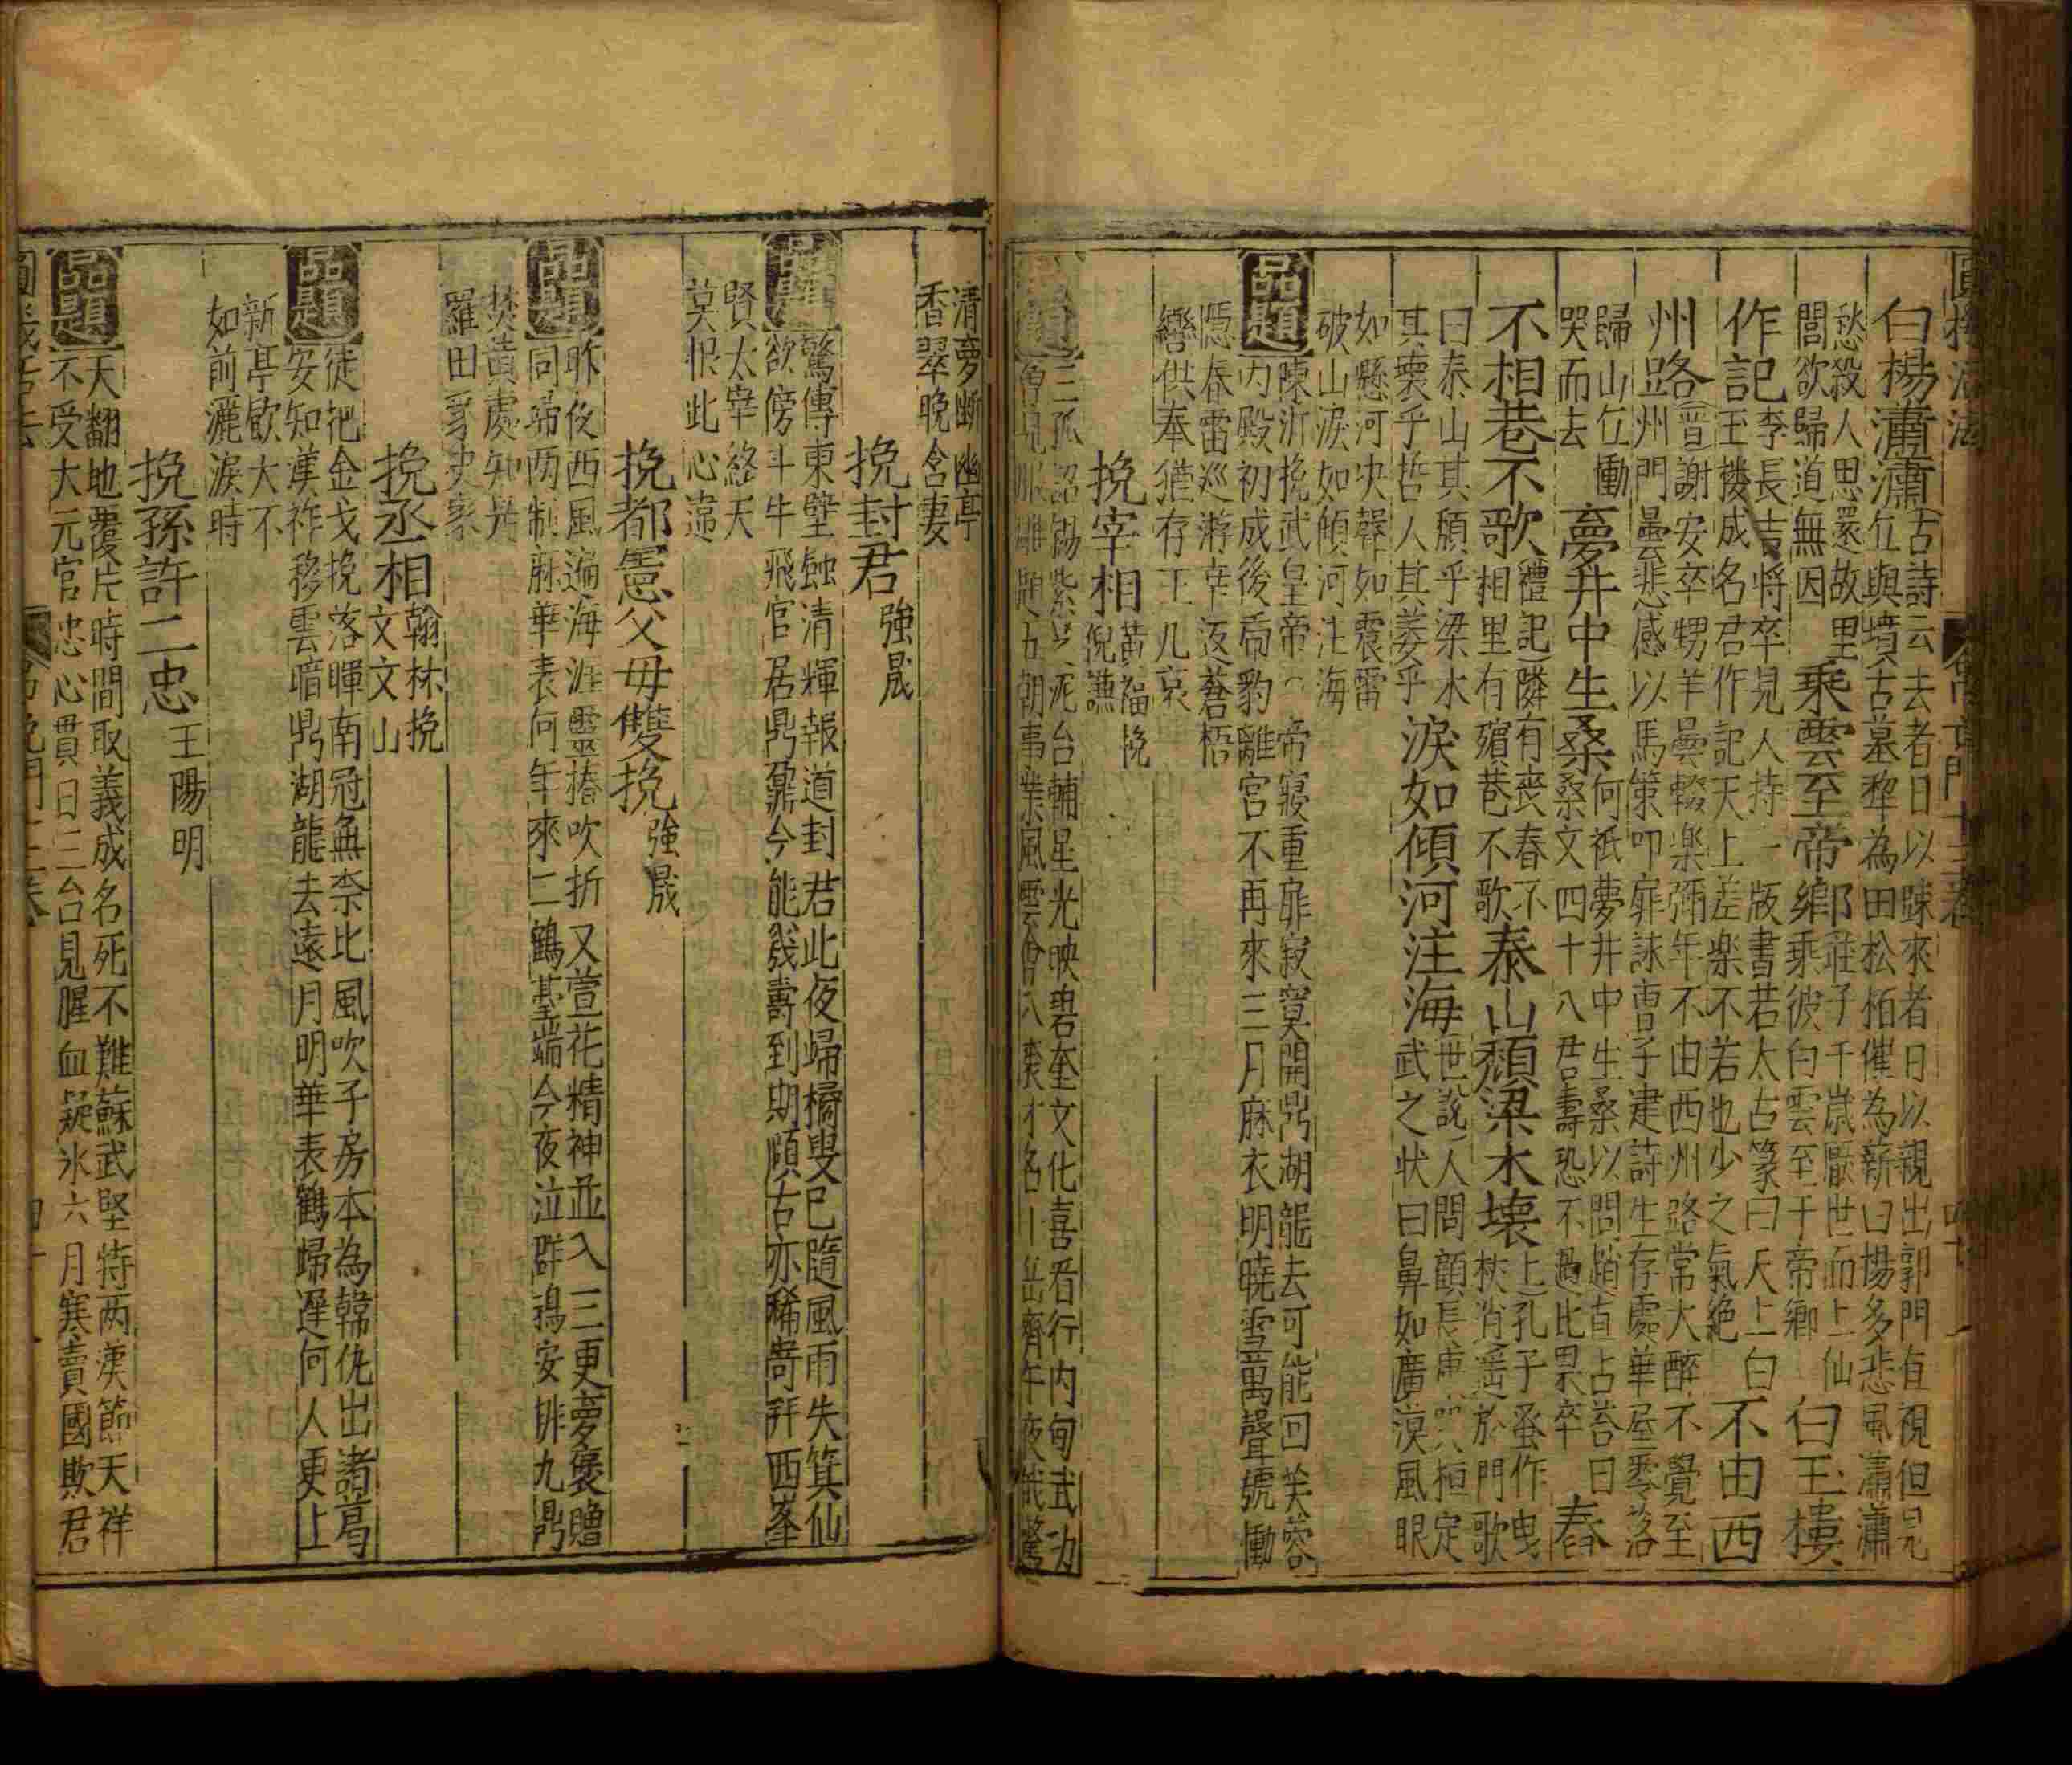 白楊瀟瀟古詩云去者日以疎來者日以親出郭門直視但見
丘與墳古墓犂為田松栢催為新白楊多悲風瀟瀟
愁殺人思還故里
閭欲歸道無因
乘雲至帝鄉莊子千歲厭世而上仙
乘彼白雲至于帝鄉
白玉樓
作記李長吉將卒見人持一版書若太古篆曰天上白
玉樓成名君作記天上差楽不若也少之氣絶
不由西
州路晋謝安卒甥羊曇輟楽彌年不由西州路常大醉不覺至
州門曇悲感以馬策叩扉誦曹子建詩生存處華屋零落
歸山丘慟
哭而去
夢井中生桑何祇夢井中生桑以問趙直占荅曰
桑文四十八君壽恐不過比果卒
舂
不相巷不歌禮記隣有喪舂不
相里有殯巷不歌
泰山頽梁木壞上孔子蚤作曳
杖消遥於門歌
曰泰山其頽乎梁木
其壞乎哲人其萎乎
淚如傾河注海世說人問顧長康哭桓定
武之状曰鼻如廣漠風眼
如懸河决聲如震雷
破山淚如傾河注海
品題
陳沂挽武皇帝帝寢重扉寂寞開鼎湖龍去可能回芙蓉
内殿初成後豹離宮不再來三月麻衣明曉雪萬聲號慟
隱春雷巡游宰返蒼梧
轡供奉猶存玉几哀
挽宰相黄福挽
倪謙
品題
三孤詔錫紫泥台輔星光映碧奎文化喜看行内甸武功
五朝事業風雲會八袠才名斗岳齊午夜俄驚
清夢斷幽亭
香翠晚含妻
挽封君強晟
品題
驚傳東壁蝕清輝報道封君此夜歸橘叟已隨風雨失箕仙
欲傍斗牛飛官居鼎鼐今能幾壽到期頤古亦稀啇拜西峯
賢太宰終天
莫恨此心違
挽都憲父母雙挽強晟
品題
昨夜西風遍海涯靈椿吹折又萱花精神並入三更夢褒贈
同歸两制麻華表何年來二鶴墓端今夜泣群鴉安排九鼎
焚黄處知與
羅田豸史家
挽丞相翰林挽
文文山
品題
徒把金戈挽落暉南冠無奈比風吹子房本為韓仇出諸葛
安知漢祚移雲暗鼎湖龍去遠月明華表鶴歸遲何人更上
新亭歇大不
如前灑淚時
挽孫許二忠王陽明
品題
天翻地覆片時間取義成名死不難蘇武堅持两漢節天祥
不受大元官忠心貫日三台見腥血凝氷六月寒賣國欺君